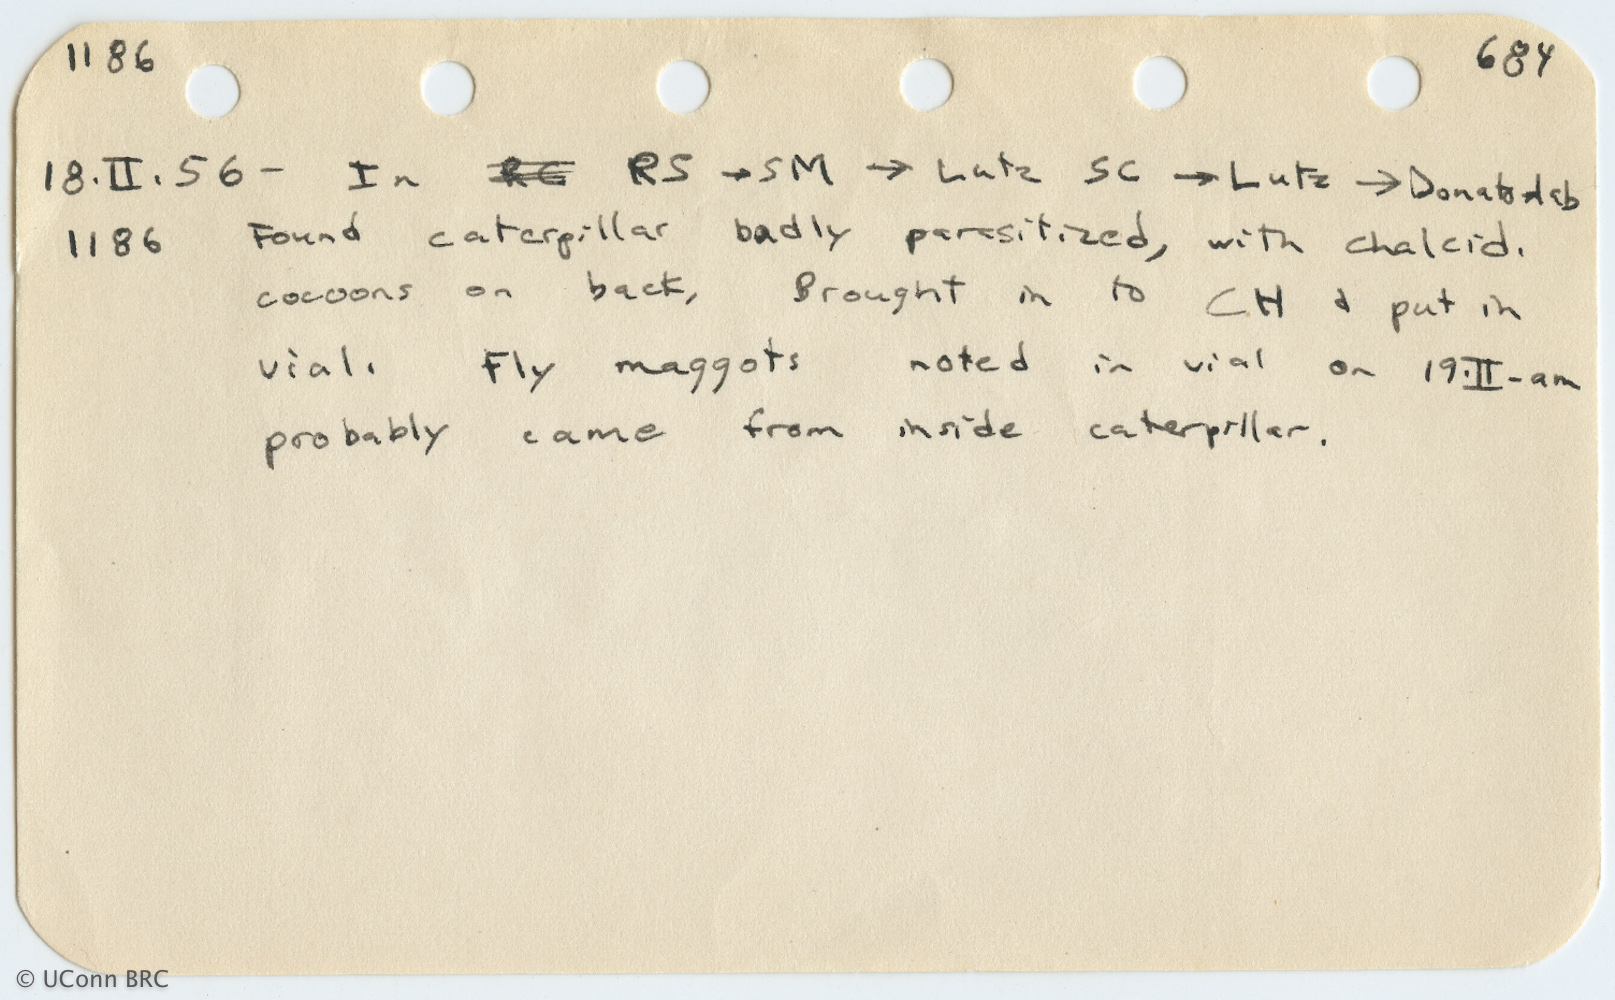 1186 684
18.II.56- In RS →SM → Lutz SC →Lutz →Donato
1186 Found caterpillar badly parasitized, with chalcid.
cocoons on back, Brought in to CH & put in
vial. Fly maggots noted in vial on 19.II-am
probably came from inside caterpillar.
© UConn BRC